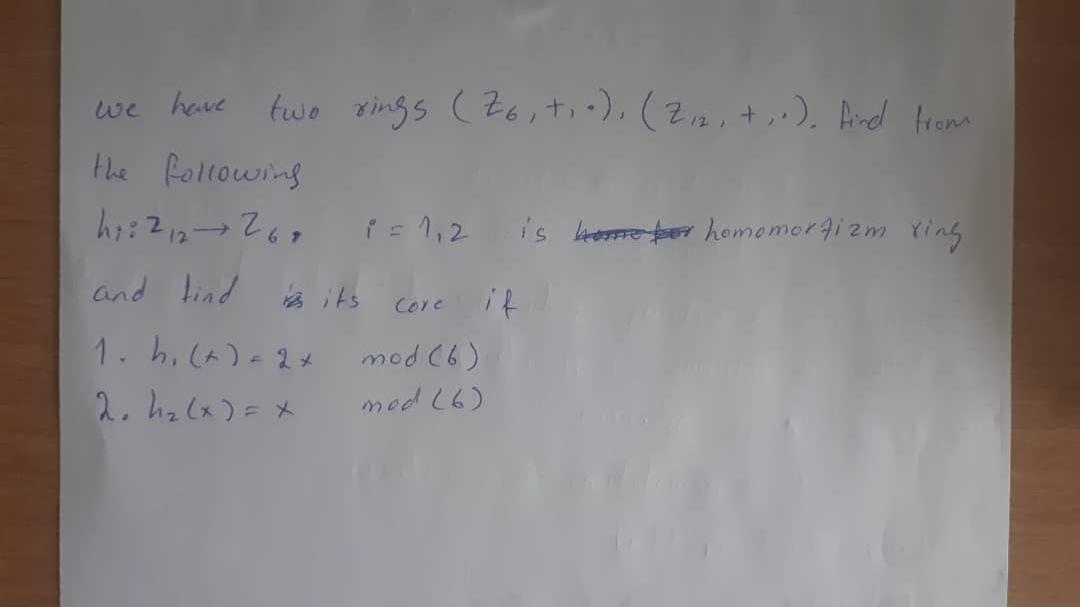 we have two rings (Z6, +, ·), (Z12, +, ·). find from
the following
hi: Z12 → Z6, i = 1,2 is homomorfizm ring
and find its core if
1. h1(x) = 2x mod (6)
2. h2(x) = x mod (6)